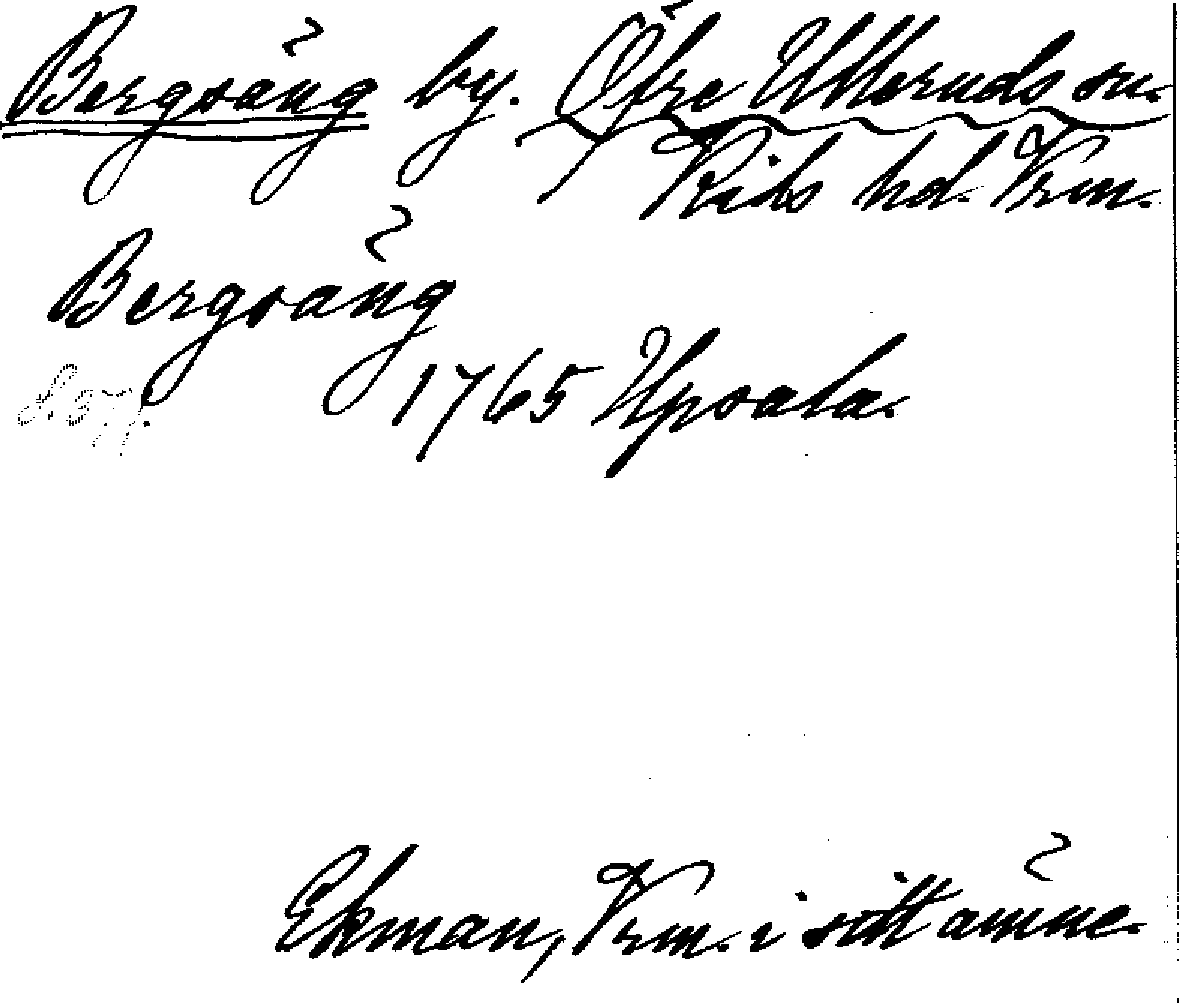 Bergsäng by. Öfre Ulleruds sn.
Kils hd. Vrm.
Bergsäng
1765 Upsala.
Ekman, Vrm. i sitt ämne.